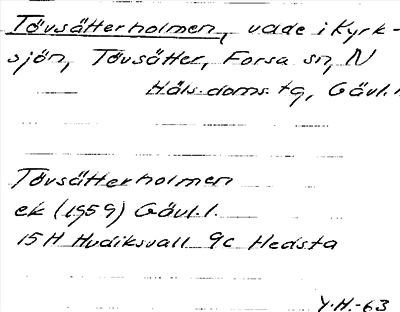 Tövsätterholmen, udde i Kyrk-
sjön, Tövsätter, Forsa sn, N
Häls. doms. tg, Gävl. l.
Tövsätterholmen
ek (1959) Gävl. l.
15H Hudiksvall 9c Hedsta
Y.H.-63